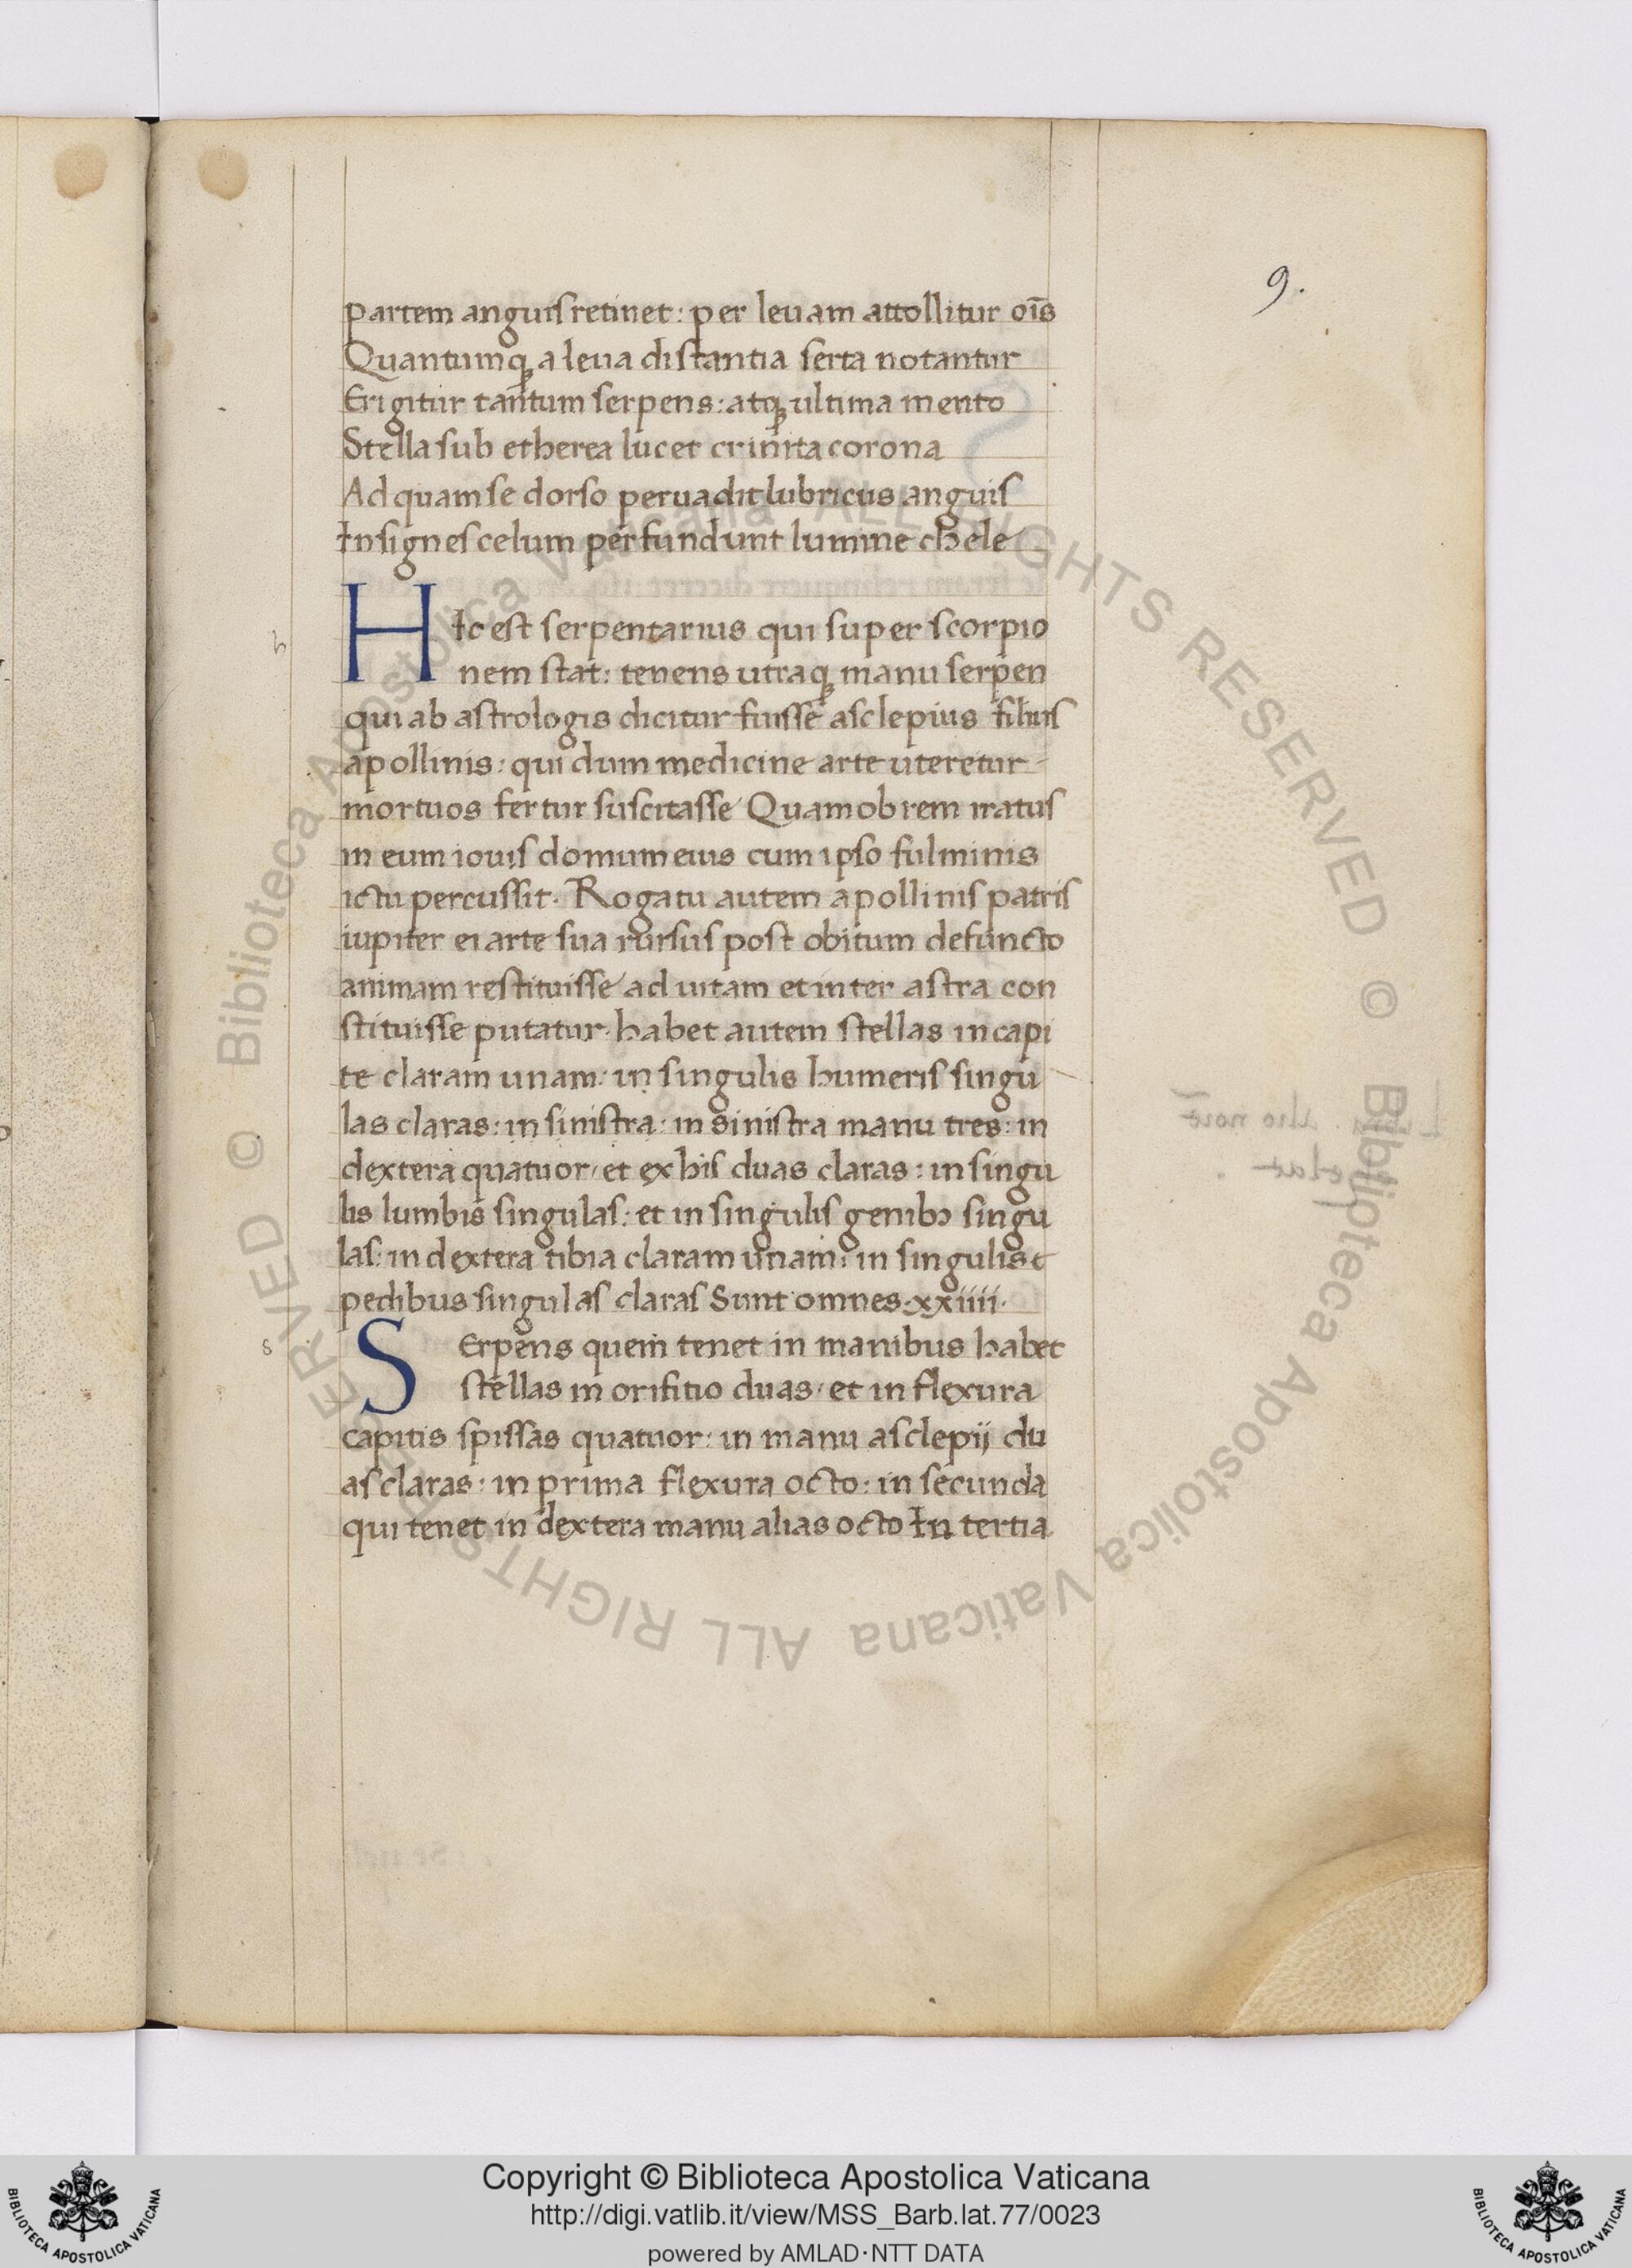 9.
partem anguis retinet: per leuam attollitur oīs
Quantumq; a leua distantia serta notantur
Erigitur tantum serpens: atq; ultima mento
Stella sub etherea lucet crinita corona
Ad quam se dorso peruadit lubricus anguis
Insignes celum perfundunt lumine chele
h
HIc est serpentarius qui super scorpio
nem stat: tenens utraq; manu serpen
qui ab astrologis dicitur fuisse asclepius filius
apollinis: qui dum medicine arte uteretur
mortuos fertur suscitasse Quamobrem iratus
in eum iouis domum eius cum ipso fulminis
ictu percussit. Rogatu autem apollinis patris
iupiter ei arte sua rursus post obitum defuncto
animam restituisse ad uitam et inter astra con
stituisse putatur. habet autem stellas in capi
te claram unam: in singulis humeris singu
las claras: in sinistra: in sinistra manu tres: in
dextera quatuor, et ex his duas claras: in singu
lis lumbis singulas: et in singulis genibꝫ singu
las: in dextera tibia claram unam: in singulis
pedibus singulas claras Sunt omnes.xxiiii.
s
SErpens quem tenet in manibus habet
stellas in orifitio duas, et in flexura
capitis spissas quatuor: in manu asclepij du
as claras: in prima flexura octo: in secunda
qui tenet in dextera manu alias octo In tertia
© Biblioteca Apostolica Vaticana ALL RIGHTS RESERVED © Biblioteca Apostolica Vaticana ALL RIGHTS RESERVED
Copyright © Biblioteca Apostolica Vaticana
http://digi.vatlib.it/view/MSS_Barb.lat.77/0023
powered by AMLAD·NTT DATA
BIBLIOTECA APOSTOLICA VATICANA
BIBLIOTECA APOSTOLICA VATICANA